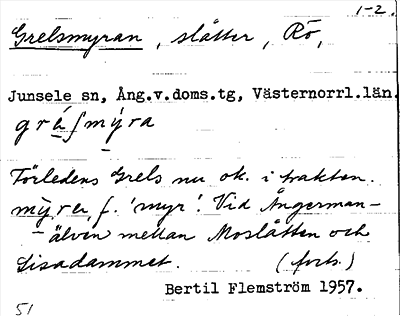 1-2.
Grelsmyran, slåtter, Rö,
Junsele sn, Ång.v.doms.tg, Västernorrl.län.
gre̍ʃmy̍ra
Förledens Grels nu ok. i trakten.
my̍ra, f. 'myr'. Vid Ångerman-
älven mellan Moslåtten och
Lisadammet. (forts.)
Bertil Flemström 1957.
51